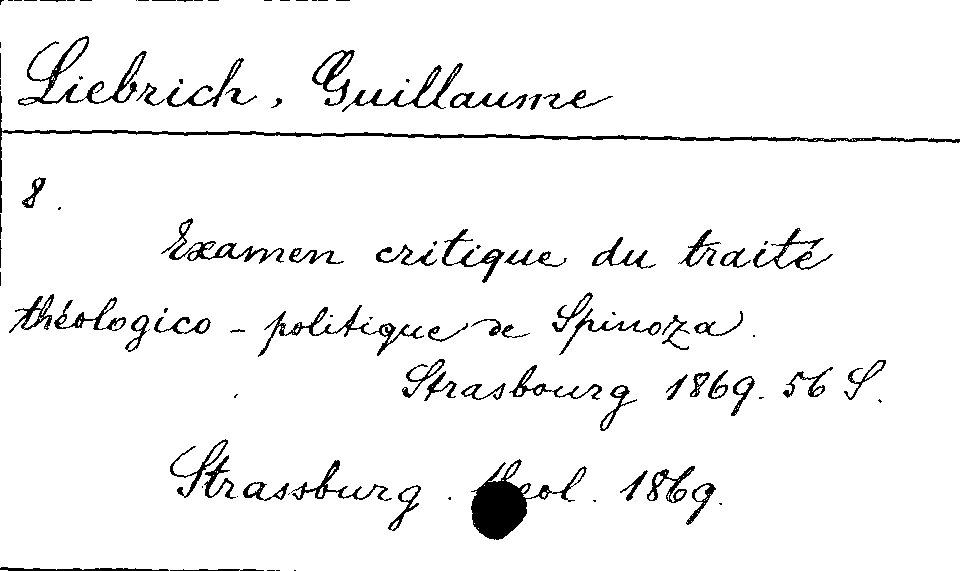 Liebrich, Guillaume
8.
Examen critique du traité
théologico-politique de Spinoza.
Strasbourg 1869. 56 S.
Strassburg. theol. 1869.